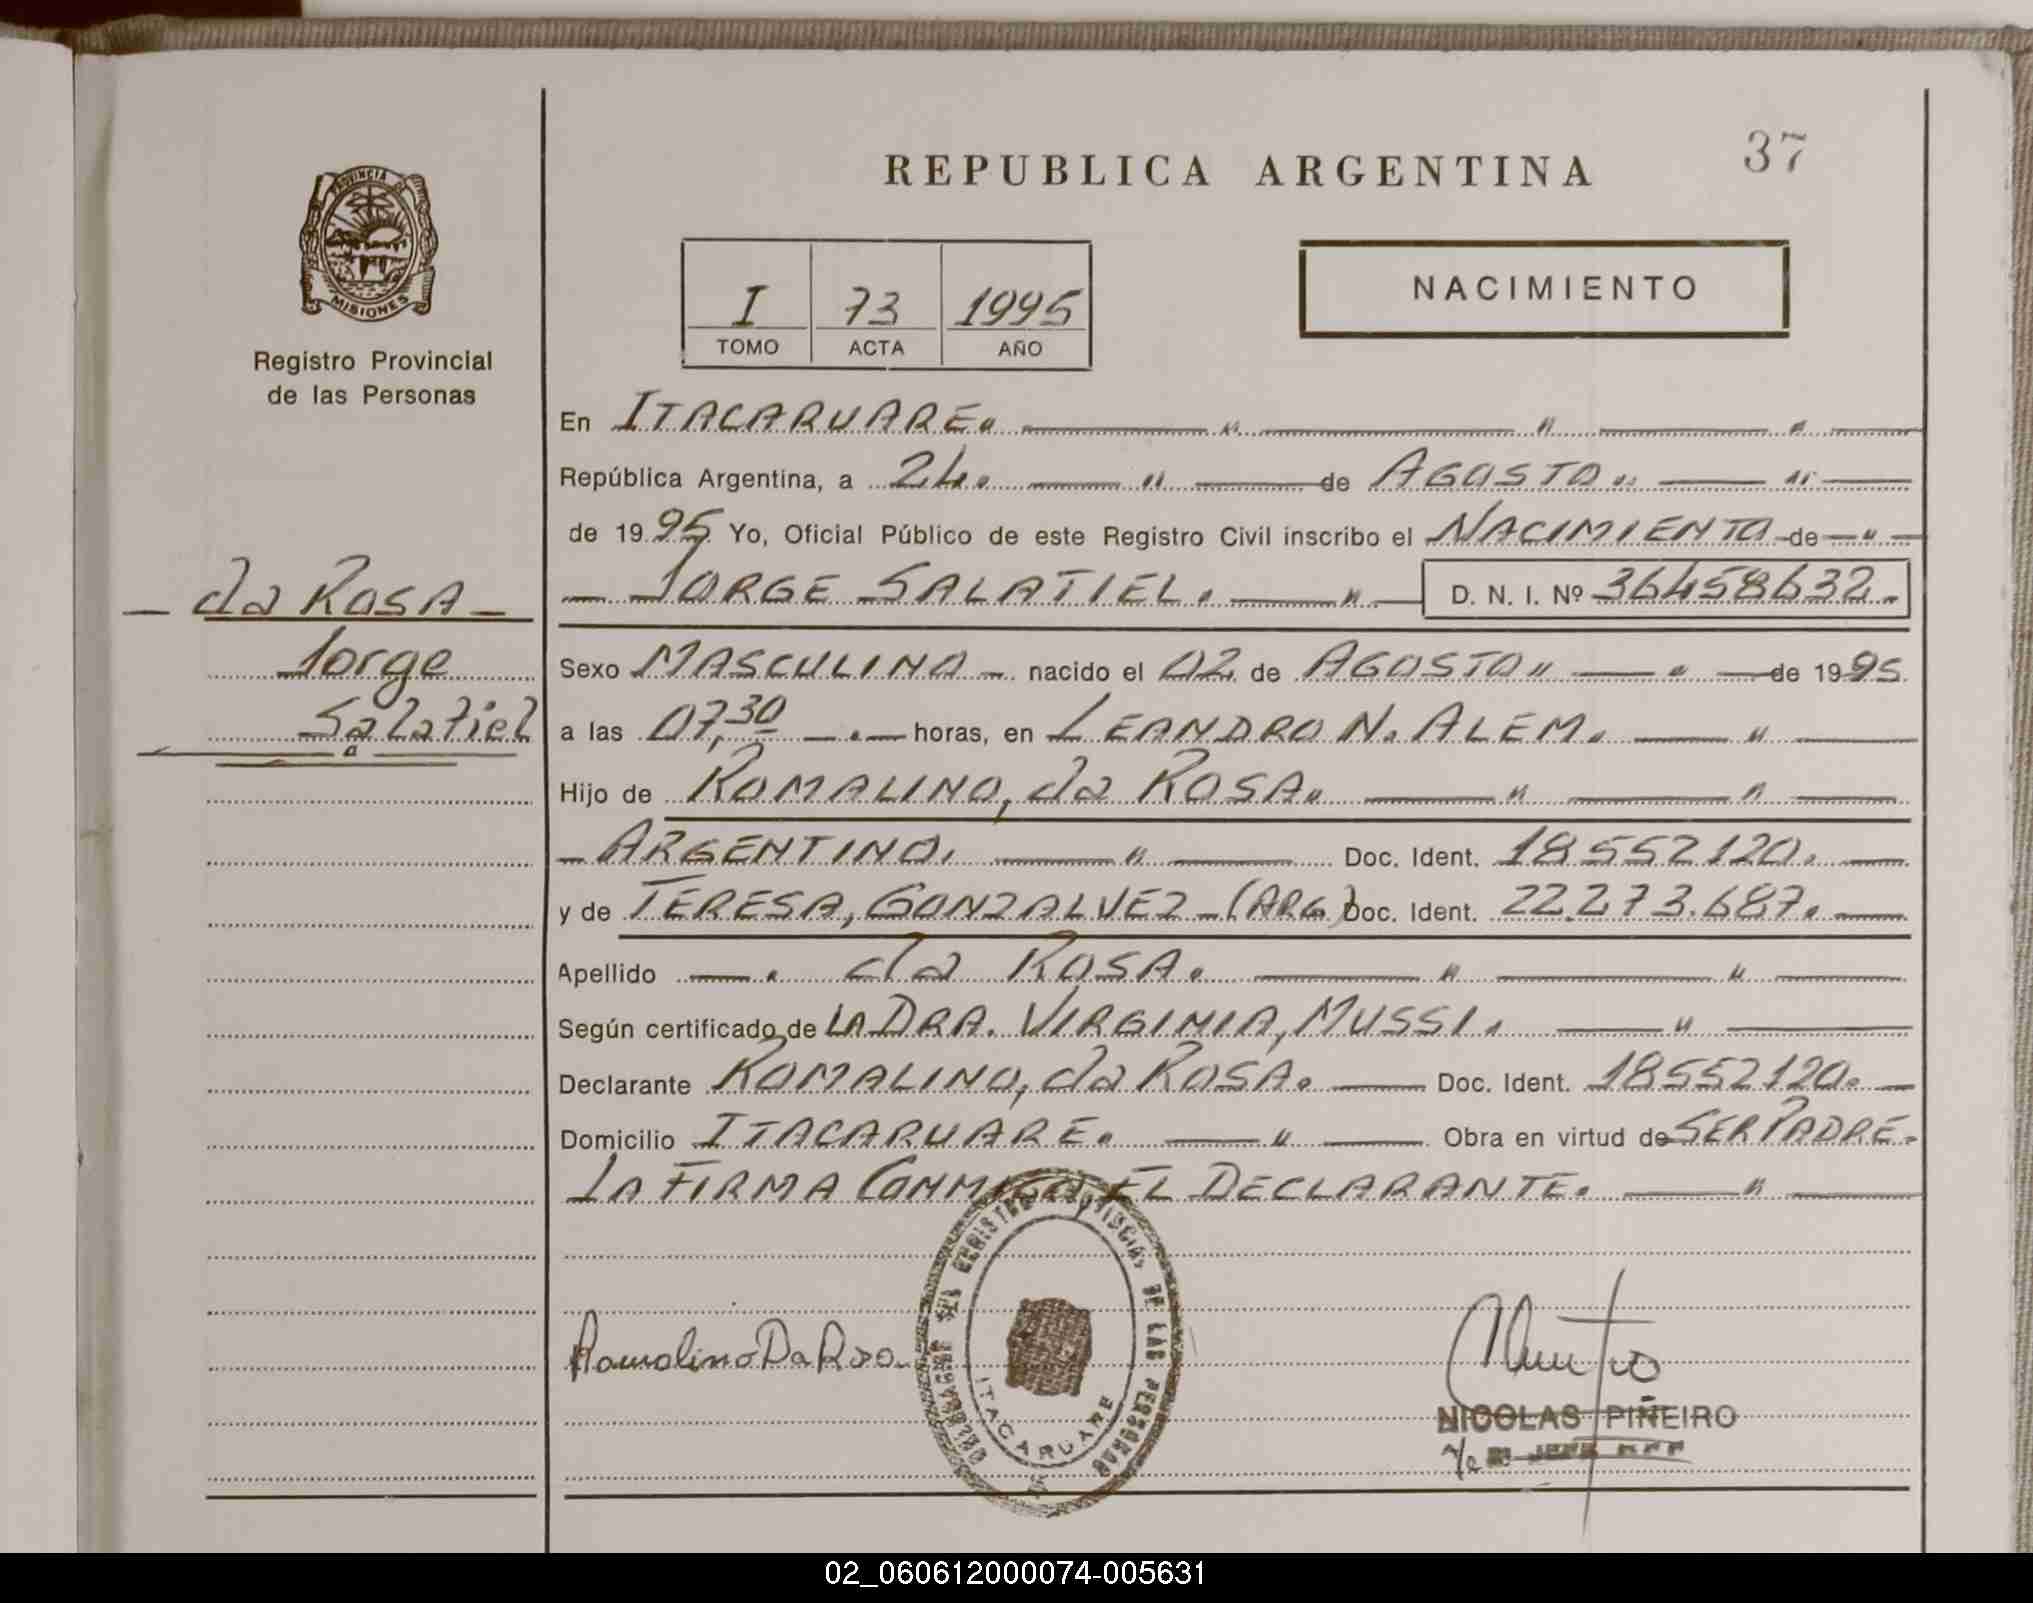 37
REPUBLICA ARGENTINA
PROVINCIA DE
MISIONES
Registro Provincial
de las Personas
I 73 1995
TOMO ACTA AÑO
NACIMIENTO
da ROSA
Jorge
Salatiel
En ITACARUARE.
República Argentina, a 24. de AGOSTO
de 1995 Yo, Oficial Público de este Registro Civil inscribo el NACIMIENTO de
JORGE SALATIEL. D. N. I. Nº 36458632.
Sexo MASCULINO nacido el 02 de AGOSTO de 1995
a las 07,30 horas, en LEANDRO N. ALEM.
Hijo de ROMALINO, da ROSA
ARGENTINO. Doc. Ident. 18552120.
y de TERESA, GONZALVEZ (ARG) Doc. Ident. 22.273.687.
Apellido da ROSA.
Según certificado de LA DRA. VIRGINIA, MUSSI.
Declarante ROMALINO, da ROSA. Doc. Ident. 18552120.
Domicilio ITACARUARE. Obra en virtud de SER PADRE.
LA FIRMA CONMIGO, EL DECLARANTE.
REGISTRO PROVINCIAL DE LAS PERSONAS
ITACARUARE
Romalino Da Rosa
NICOLAS PIÑEIRO
02_060612000074-005631